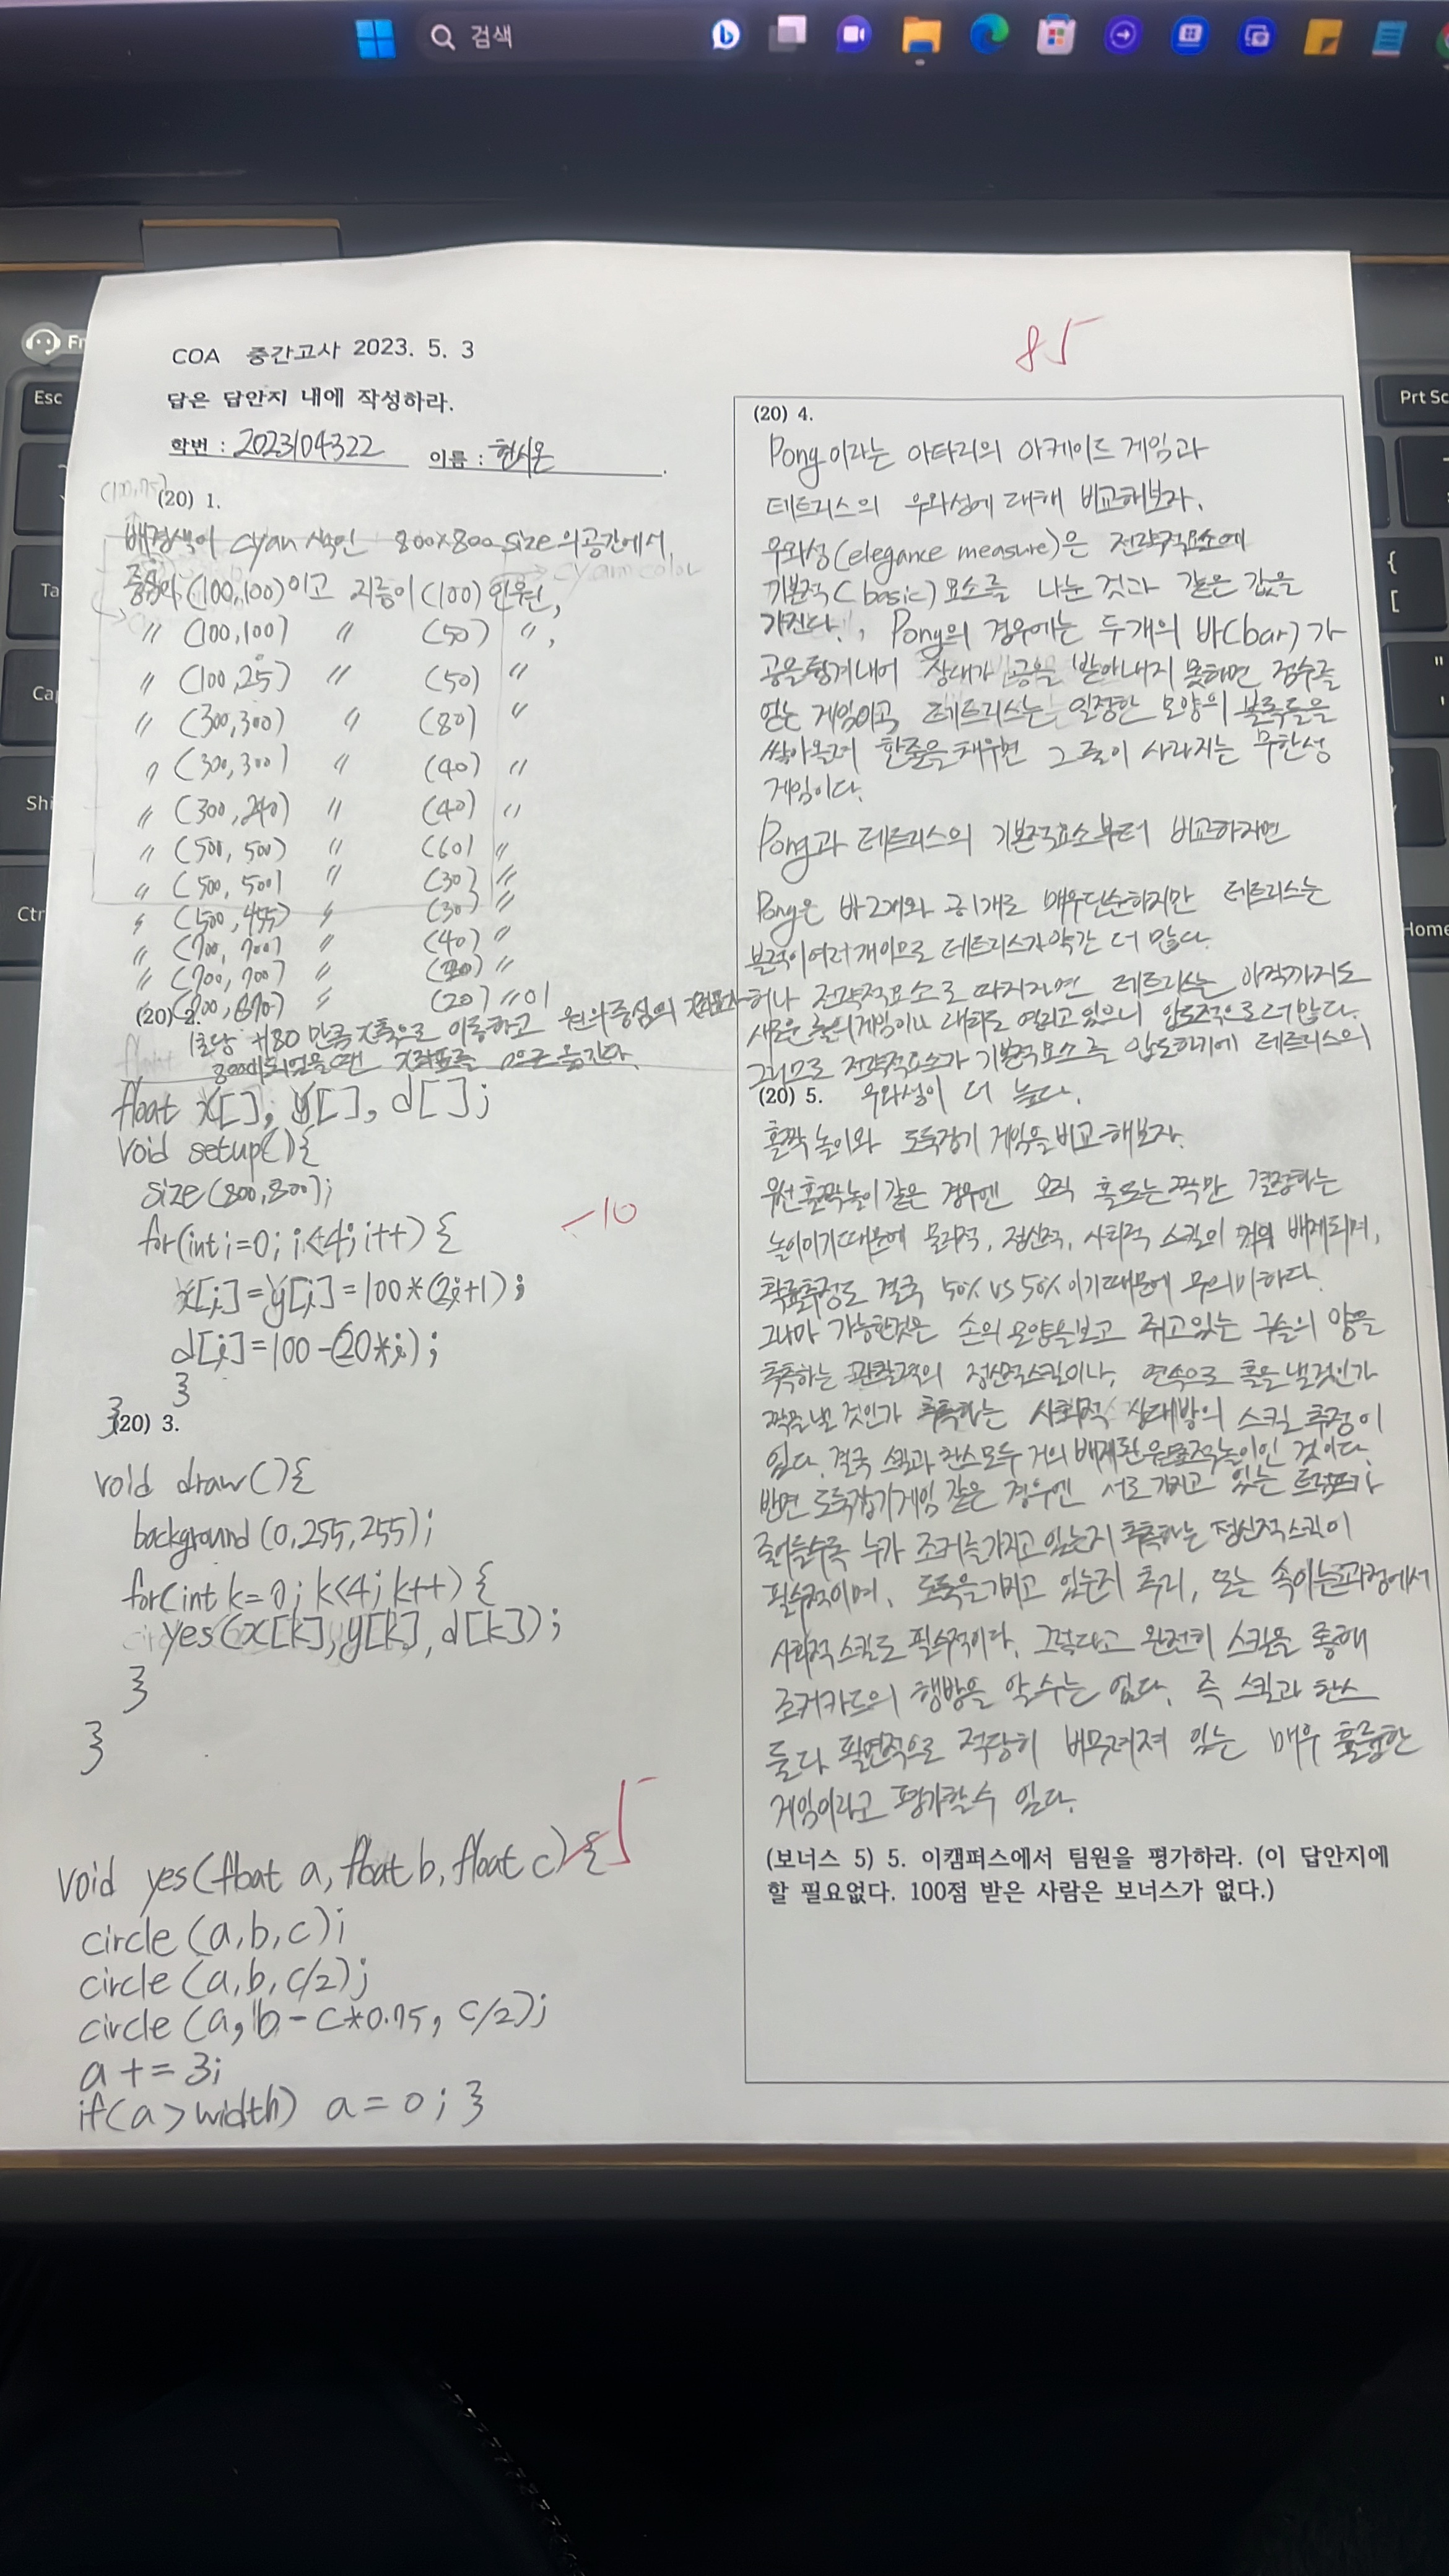 검색
Esc
Prt Sc
Home
85
COA 중간고사 2023. 5. 3
답은 답안지 내에 작성하라.
학번 : 2023104322 이름 : 현시온
(20) 1.
배경색이 cyan 색인 800×800 size의 공간에서,
중심이 (100,100)이고 지름이 (100)인 원,
〃 (100,100) 〃 (50) 〃,
〃 (100,25) 〃 (50) 〃
〃 (300,300) 〃 (80) 〃
〃 (300,300) 〃 (40) 〃
〃 (300,240) 〃 (40) 〃
〃 (500, 500) 〃 (60) 〃
〃 (500, 500) 〃 (30) 〃
〃 (500, 455) 〃 (30) 〃
〃 (700, 700) 〃 (40) 〃
〃 (700, 700) 〃 (20) 〃
〃 (700, 670) 〃 (20) 〃이
(20) 2.
1초당 +180 만큼 x축으로 이동하고 원의 중심의
800이 되었을 땐 x좌표를 0으로 옮긴다.
float x[], y[], d[];
void setup(){
size(800,800);
for(int i=0; i<4; i++) {
-10
x[i]=y[i]=100*(2i+1);
d[i]=100-(20*i);
}
}
(20) 3.
void draw(){
background(0,255,255);
for(int k=0; k<4; k++) {
yes(x[k],y[k],d[k]);
}
}
void yes(float a, float b, float c) {
-5
circle(a,b,c);
circle(a,b,c/2);
circle(a, b-c*0.75, c/2);
a += 3;
if(a>width) a=0; }
(20) 4.
Pong이라는 아타리의 아케이드 게임과
테트리스의 우아성에 대해 비교해보자.
우아성(elegance measure)은 전략적요소에
기본적(basic)요소를 나눈 것과 같은 값을
가진다. Pong의 경우에는 두개의 바(bar)가
공을 튕겨내어 상대가 공을 받아내지 못하면 점수를
얻는 게임이고, 테트리스는 일정한 모양의 블록들을
쌓아올려 한줄을 채우면 그 줄이 사라지는 무한성
게임이다.
Pong과 테트리스의 기본적요소부터 비교하자면
Pong은 바2개와 공1개로 매우단순하지만 테트리스는
블럭이 여러개이므로 테트리스가 약간 더 많다.
허나 전략적요소로 따지자면 테트리스는 아직까지도
새로운 게임이나 대회도 열리고 있으니 압도적으로 더 많다.
그러므로 전략적요소가 기본적요소를 압도하기에 테트리스의
우아성이 더 높다.
(20) 5.
홀짝 놀이와 도둑잡기 게임을 비교해보자.
우선 홀짝놀이 같은 경우엔 오직 홀 또는 짝만 결정하는
놀이이기때문에 물리적, 정신적, 사회적 스킬이 거의 배제되며,
확률추정도 결국 50% vs 50%이기때문에 무의미하다.
그나마 가능한것은 손의 모양을보고 쥐고있는 구슬의 양을
추측하는 관찰력의 정신적스킬이나, 연속으로 홀을 낼것인가
짝을 낼 것인가 추측하는 사회적 상대방의 스킬 추정이
있다. 결국 스킬과 찬스 모두 거의 배제된 놀이인 것이다.
반면 도둑잡기게임 같은 경우엔 서로 가지고 있는 트럼프가
줄어들수록 누가 조커를가지고 있는지 추측하는 정신적스킬이
필수적이며, 도둑을가지고 있는지 추리, 또는 속이는과정에서
사회적스킬도 필수적이다. 그렇다고 완전히 스킬을 통해
조커카드의 행방을 알수는 없다. 즉 스킬과 찬스
둘다 필연적으로 적당히 버무려져 있는 매우 훌륭한
게임이라고 평가할수 있다.
(보너스 5) 5. 이캠퍼스에서 팀원을 평가하라. (이 답안지에
할 필요없다. 100점 받은 사람은 보너스가 없다.)